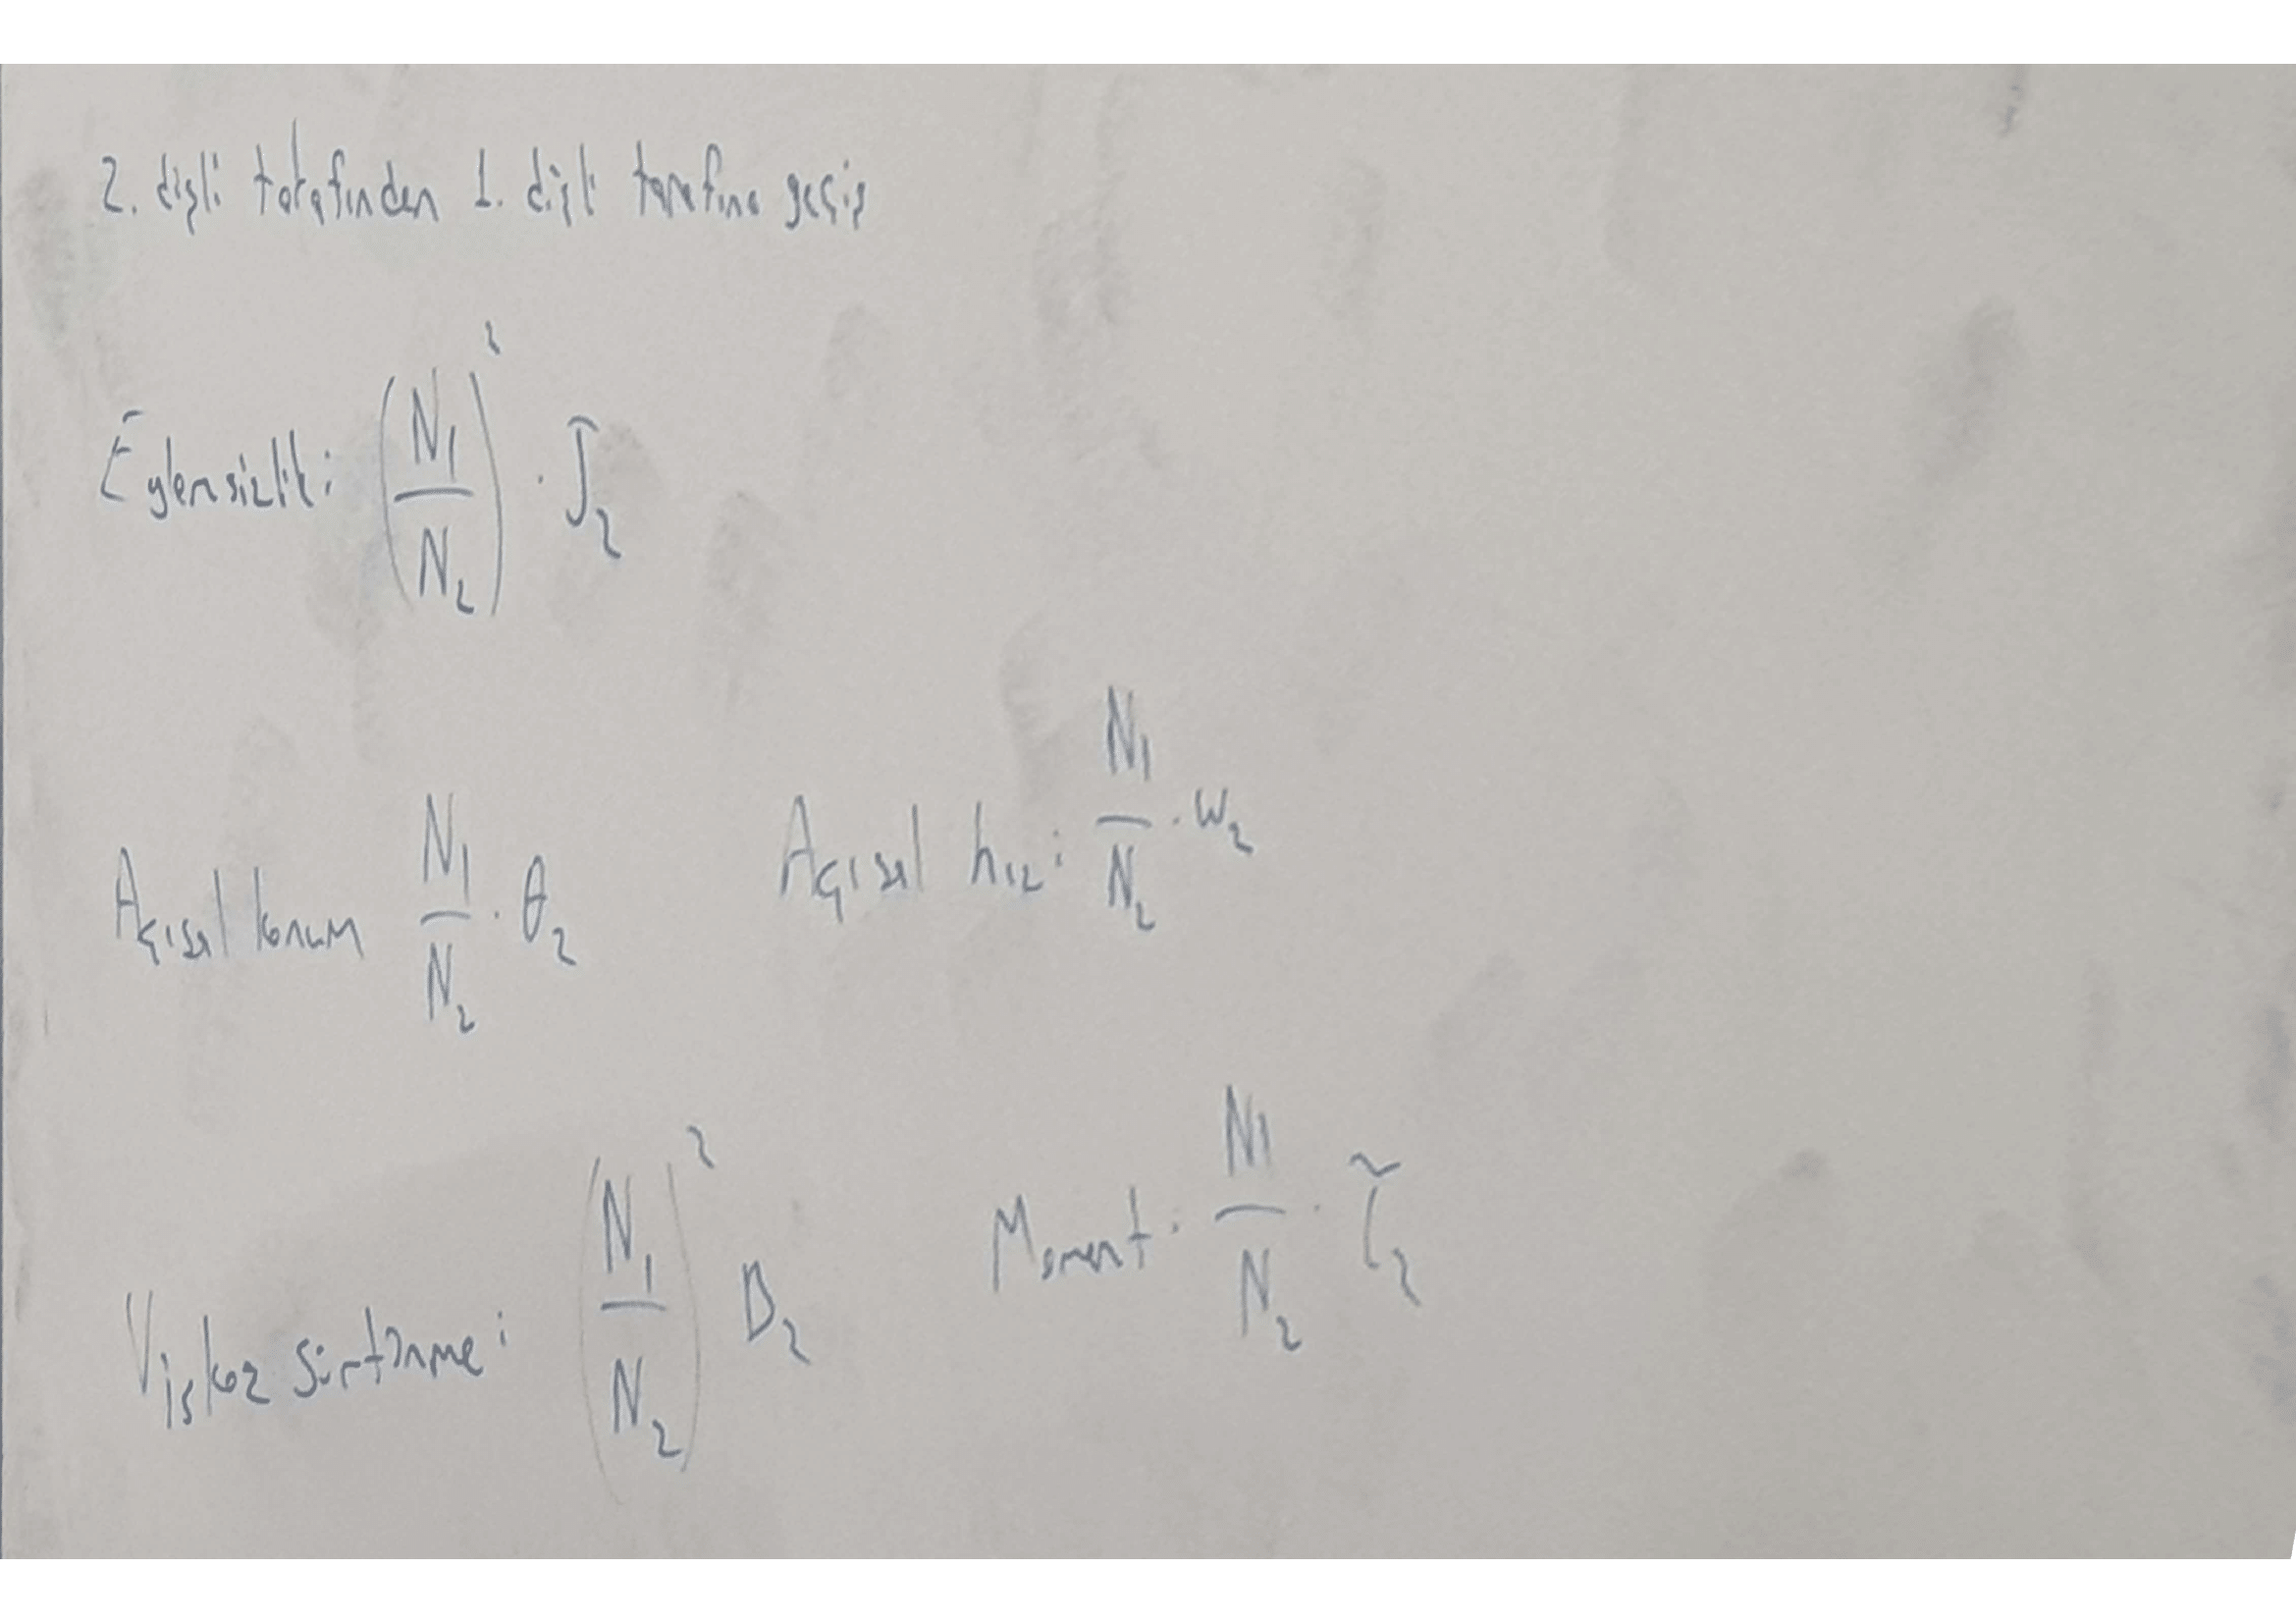 2. dişli tarafından 1. dişli tarafına geçiş
Eylemsizlik: (N₁/N₂)² · J₂
Açısal konum N₁/N₂ · θ₂
Açısal hız: N₁/N₂ · ω₂
Viskoz sürtünme: (N₁/N₂)² B₂
Moment: N₁/N₂ · τ₂